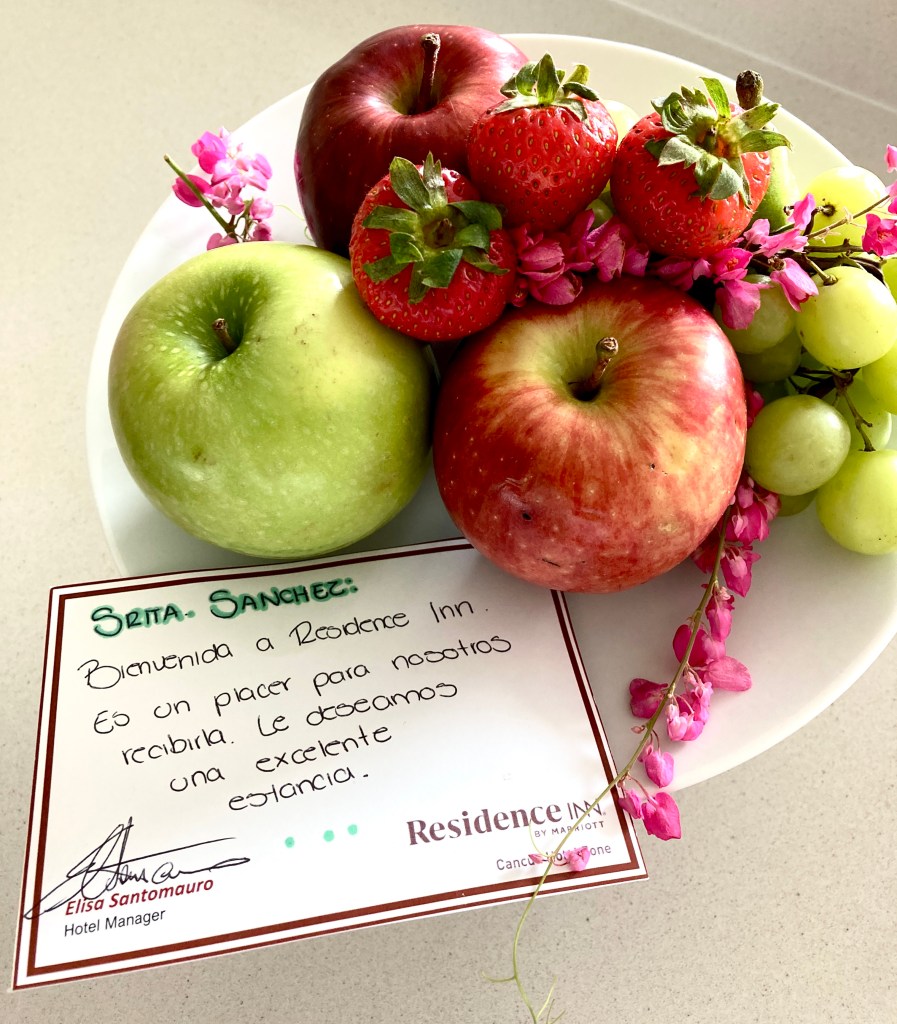 SRTA. SANCHEZ:
Bienvenida a Residence Inn.
Es un placer para nosotros
recibirla. Le deseamos
una excelente
estancia.
Residence INN.
BY MARRIOTT
Elisa Santomauro
Hotel Manager